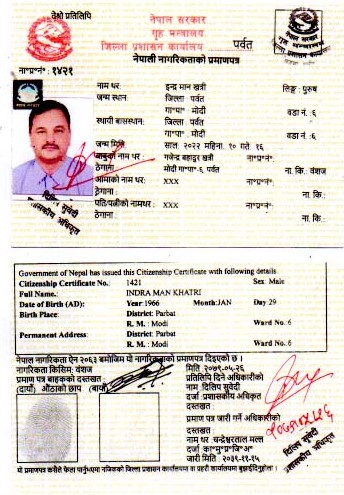 तेश्रो प्रतिलिपि
नेपाल सरकार
गृह मन्त्रालय
जिल्ला प्रशासन कार्यालय पर्वत
नेपाली नागरिकताको प्रमाणपत्र
ना॰प्र॰नं॰ : १४२१
नाम थर: इन्द्र मान खत्री लिङ्ग : पुरुष
जन्म स्थान: जिल्ला पर्वत
गा॰पा॰ मोदी वडा नं. : ६
स्थायी बासस्थान: जिल्ला: पर्वत
गा॰पा॰ मोदी वडा नं. : ६
जन्म मिति साल: २०२२ महिना. १० गते १६
बाबुको नाम थर : गजेन्द्र बहादुर खत्री ना॰प्र॰नं.
ठेगाना मोदी गा॰पा॰-६ पर्वत ना. कि.: वंशज
आमाको नाम थर: XXX ना॰प्र॰नं.
ठेगाना : ना. कि.:
पति/पत्नीको नामथर: XXX ना॰प्र॰नं.
ठेगाना : ना. कि.:
दिलिप सुवेदी
प्रशासकीय अधिकृत
Government of Nepal has issued this Citizenship Certificate with following details
Citizenship Certificate No.: 1421 Sex: Male
Full Name.: INDRA MAN KHATRI
Date of Birth (AD): Year:1966 Month:JAN Day:29
Birth Place: District: Parbat
R. M. : Modi Ward No.:6
Permanent Address: District: Parbat
R. M. : Modi Ward No.:6
नेपाल नागरिकता ऐन २०६३ बमोजिम यो नागरिकताको प्रमाणपत्र दिइएको छ ।
नागरिकता किसिम: वंशज मिति: २०७९.०५.२६
प्रमाण पत्र बाहकको दस्तखत : प्रतिलिपि दिने अधिकारीको
(दायाँ) औंठाको छाप (बायाँ) नाम थर: दिलिप सुवेदी
दर्जा :प्रशासकीय अधिकृत
दस्तखत :
प्रमाण पत्र जारी गर्ने अधिकारीको
दस्तखत :
नाम थर :चन्द्रेश्वरलाल मल्ल
दर्जा : का॰मु॰प्र॰जि॰अ॰
जारी मिति : २०३९-११-१५
दिलिप सुवेदी
प्रशासकीय अधिकृत
यो प्रमाणपत्र कसैले फेला पार्नुभएमा नजिकको जिल्ला प्रशासन कार्यालयमा वा प्रहरी कार्यालयमा बुझाईदिनुहोला ।